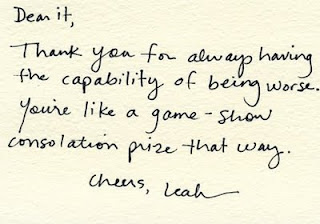 Dear it,
Thank you for always having
the capability of being worse.
You're like a game-show
consolation prize that way.
Cheers, Leah